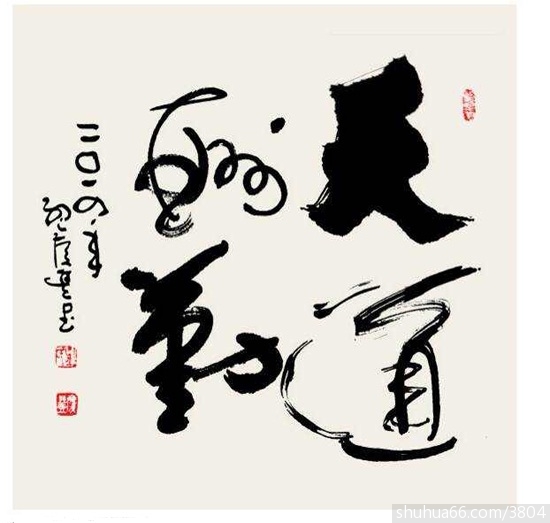 天道
酬勤
二〇一四年
shuhua66.com/3804